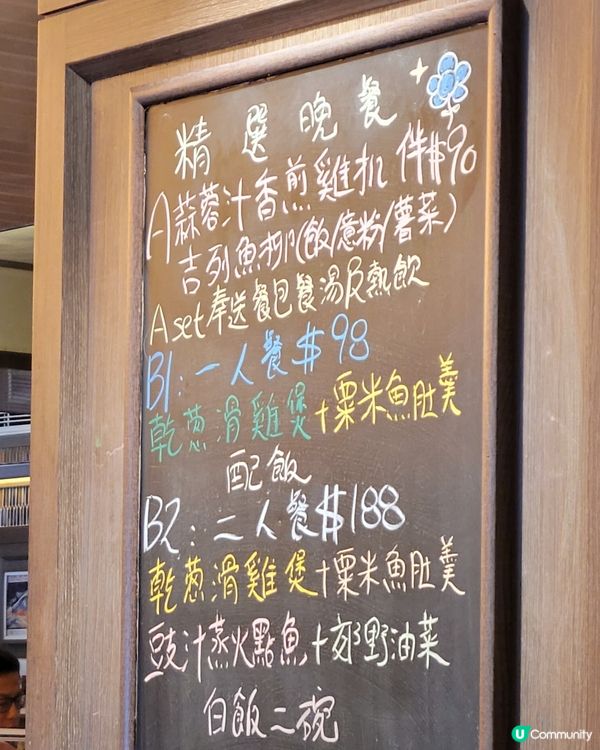 精選晚餐+
A蒜蓉汁香煎雞扒 伴$90
吉列魚柳(飯/意粉/薯菜)
A set奉送餐包餐湯及熱飲
B1:一人餐$98
乾葱滑雞煲+粟米魚肚羹
配飯
B2:二人餐$188
乾葱滑雞煲+粟米魚肚羹
豉汁蒸火點魚+郊野油菜
白飯二碗
U Community